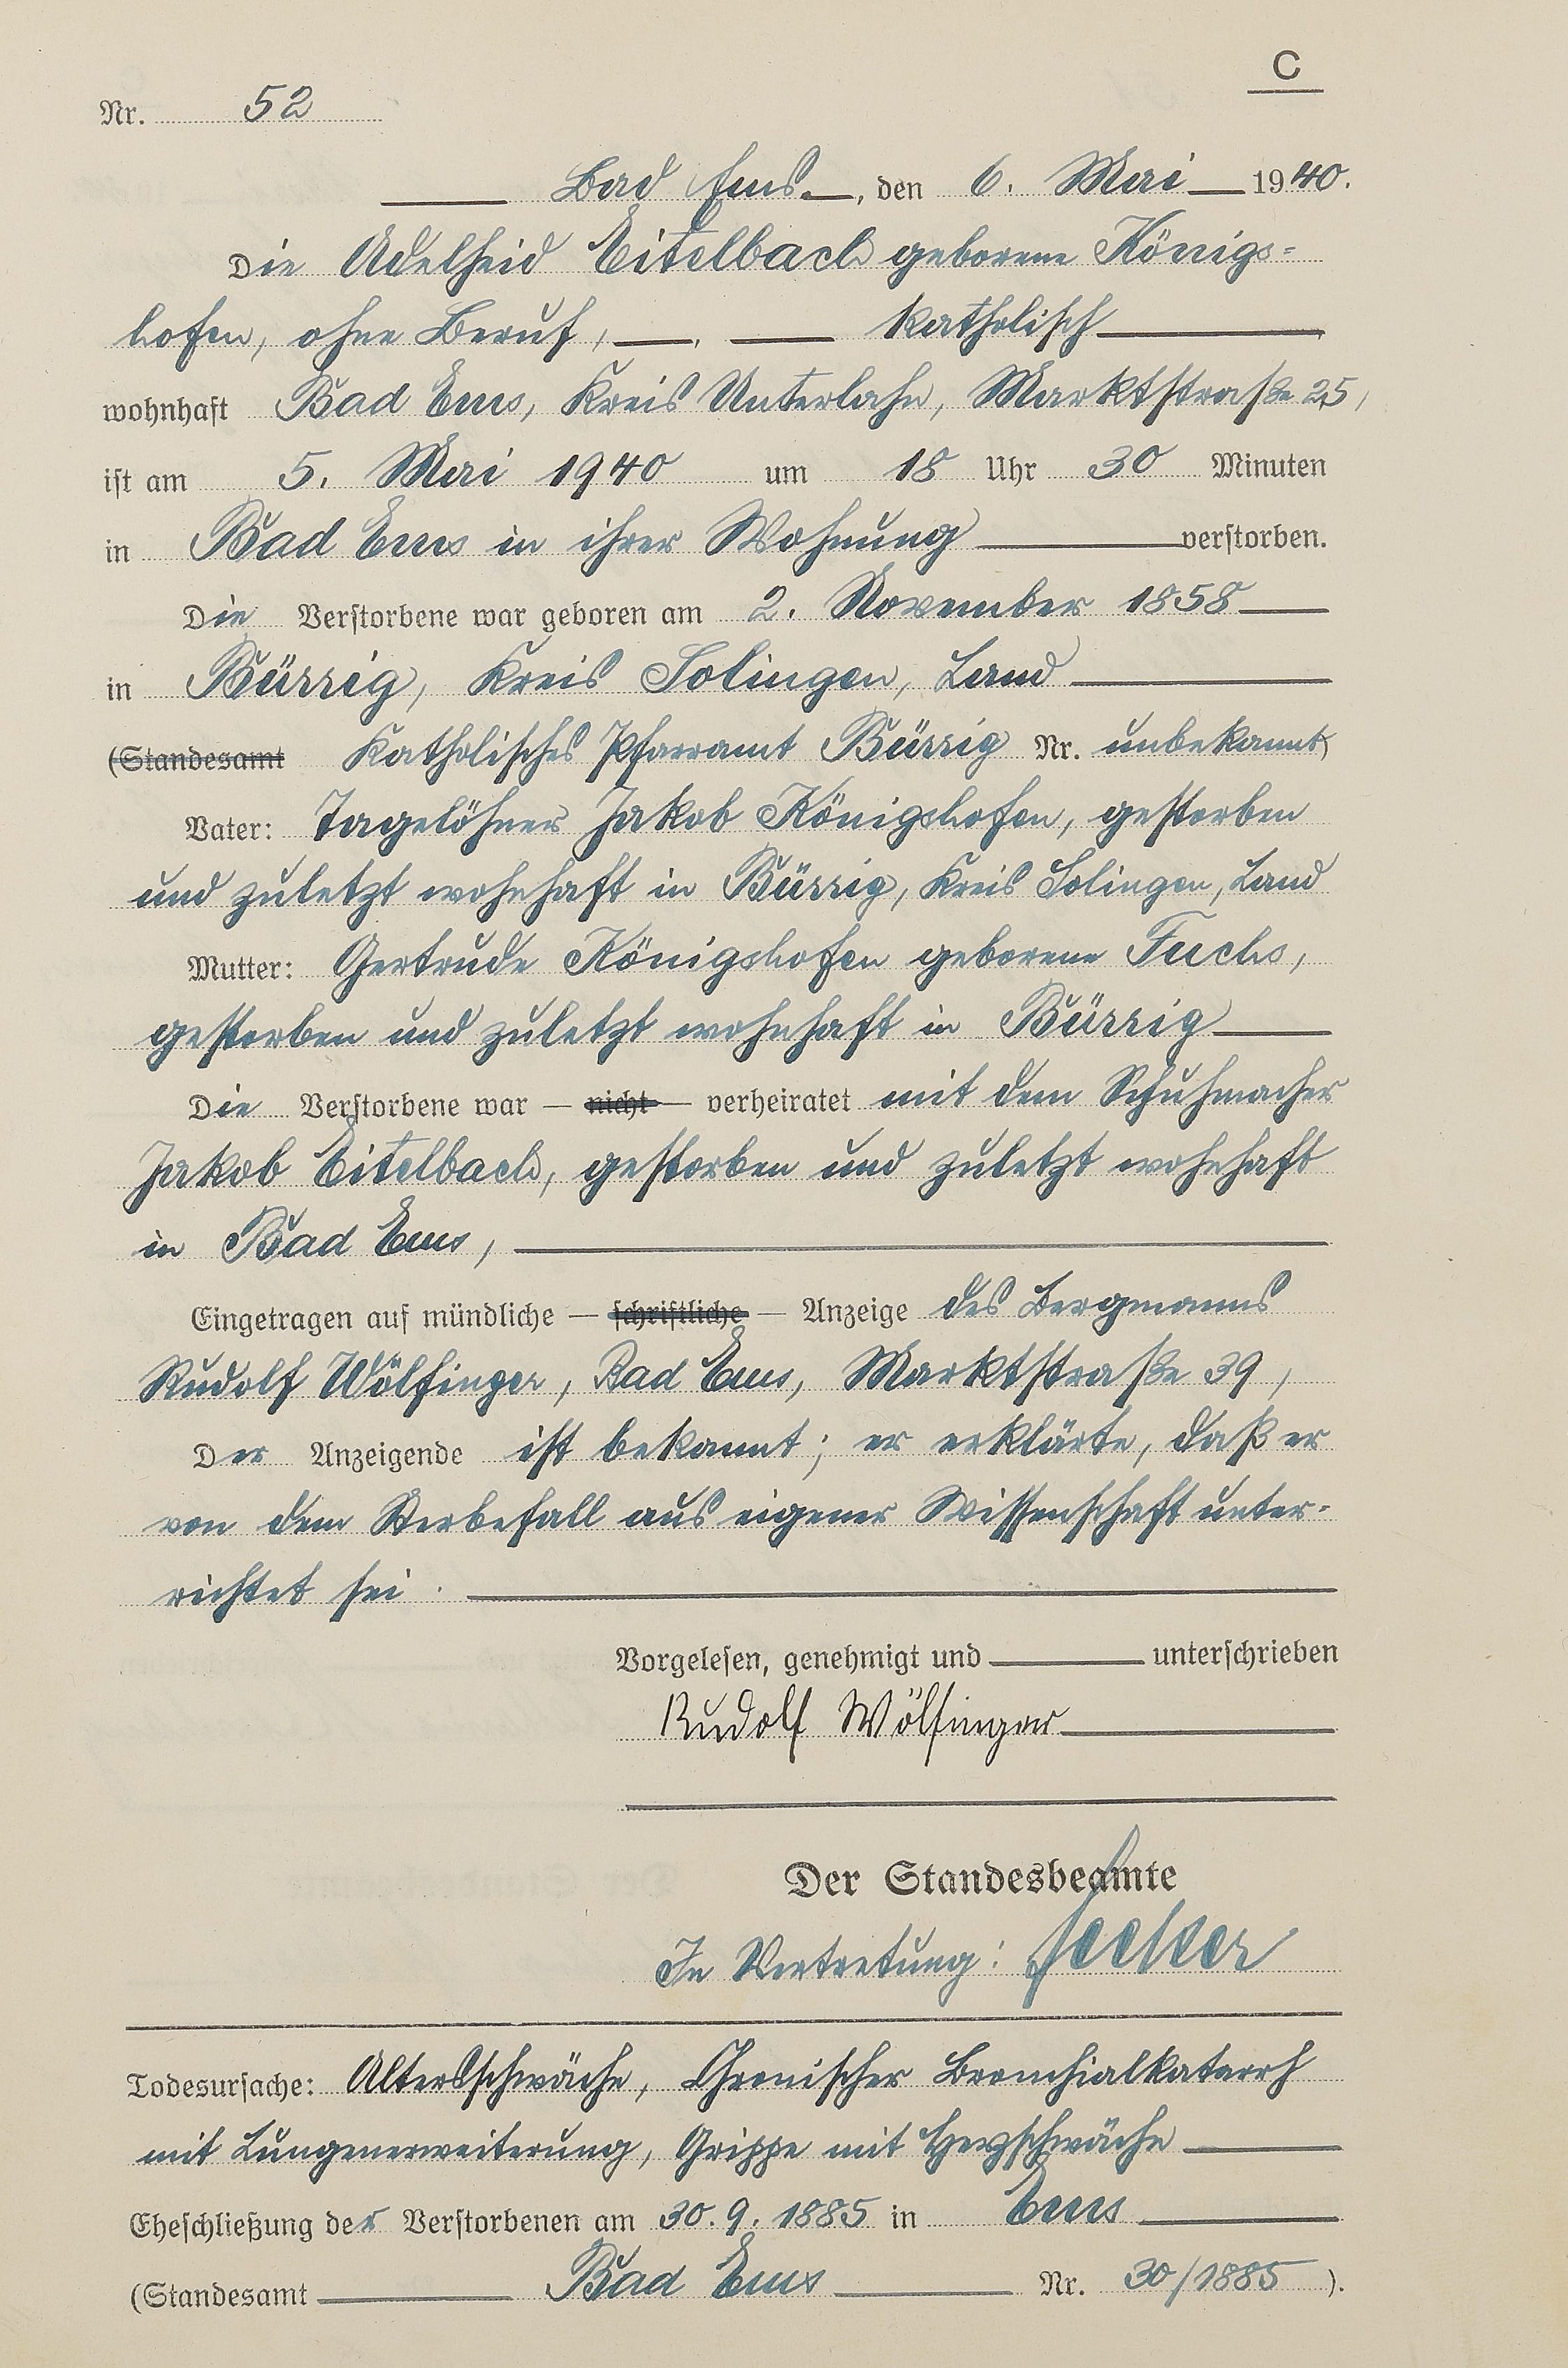 C
Nr. 52
Bad Ems, den 6. Mai 1940.
Die Adelheid Eitelbach geborene Königs=
hofen, ohne Beruf, katholisch
wohnhaft Bad Ems, Kreis Unterlahn, Marktstraße 25,
ist am 5. Mai 1940 um 18 Uhr 30 Minuten
in Bad Ems in ihrer Wohnung verstorben.
Die Verstorbene war geboren am 2. November 1858
in Bürrig, Kreis Solingen, Land
(Standesamt Katholisches Pfarramt Bürrig Nr. unbekannt)
Vater: Tagelöhner Jakob Königshofen, gestorben
und zuletzt wohnhaft in Bürrig, Kreis Solingen, Land
Mutter: Gertrude Königshofen geborene Fuchs,
gestorben und zuletzt wohnhaft in Bürrig
Die Verstorbene war — nicht — verheiratet mit dem Schuhmacher
Jakob Eitelbach, gestorben und zuletzt wohnhaft
in Bad Ems,
Eingetragen auf mündliche — schriftliche — Anzeige des Bergmanns
Rudolf Wölfinger, Bad Ems, Marktstraße 39,
Der Anzeigende ist bekannt; er erklärte, daß er
von dem Sterbefall aus eigener Wissenschaft unter-
richtet sei.
Vorgelesen, genehmigt und unterschrieben
Rudolf Wölfinger
Der Standesbeamte
In Vertretung:
Todesursache: Altersschwäche, Chronischer Bronchialkatarrh
mit Lungenerweiterung, Grippe mit Herzschwäche
Eheschließung der Verstorbenen am 30. 9. 1885 in Ems
(Standesamt Bad Ems Nr. 30/1885).